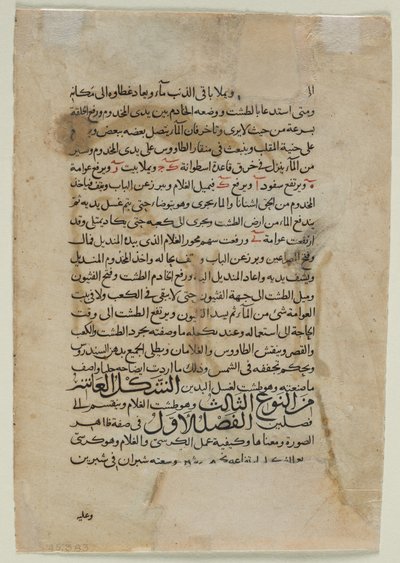 ويملا باقى الذنب ماء ويعاد غطاوه الى مكانه
ومتى استدعا بالطشت ووضعه الخادم بين يدى المخدوم ورفع الحلقة
بسرعة من حيث لا يرى وتاخر فان الماء يتصل بعضه ببعض
على حنية المقلب وينبعث فى منقار الطاووس على يدى المخدوم وسير
من الماء ينزل فى خرق قاعدة اسطوانة ويملا بيت ويرفع عوامة
ويرتفع سفود ا ويرفع فيميل الغلام ويبرز عن الباب ويقف فياخذ
المخدوم من الحق اشنانا والماء يجرى وهو يتوضا حتى يتم غسل يديه ثم
يندفع الماء من ارض الطشت ويجرى الى كعبه حتى يكاد يمتلى وقد
ارتفعت عوامة ورفعت سهم محور الغلام الذى بيده المنديل فمال
وفتح المصراعين وبرز عن الباب ووقف بحاله واخذ المخدوم المنديل
ونشف يديه واعاد المنديل اليه ورفع الخادم الطشت وفتح الفثيون
وميل الطشت الى جهة الفثيون حتى لا يبقى فى الكعب ولا فى بيت
العوامة شى من الماء ثم يسد الفثيون ويرتفع الطشت الى وقت
الحاجة الى استعماله وعند تكملة ما وصفته يجرد الطشت والكعب
والقصر وينقش الطاووس والغلامان ويطلى الجميع بدهن السندروس
ويحكم تجفيفه فى الشمس وذلك ما اردت ايضاحه جليا واصف
ما صنعته وهو طشت لغسل اليدين الشكل العاشر
من النوع الثالث وهو طشت الغلام وينقسم الى
فصلين الفصل الاول فى صفة ظاهر
الصورة ومعناها وكيفية عمل الكرسى والغلام وهو كرسى
وسعته شبران فى شبرين
وعليه